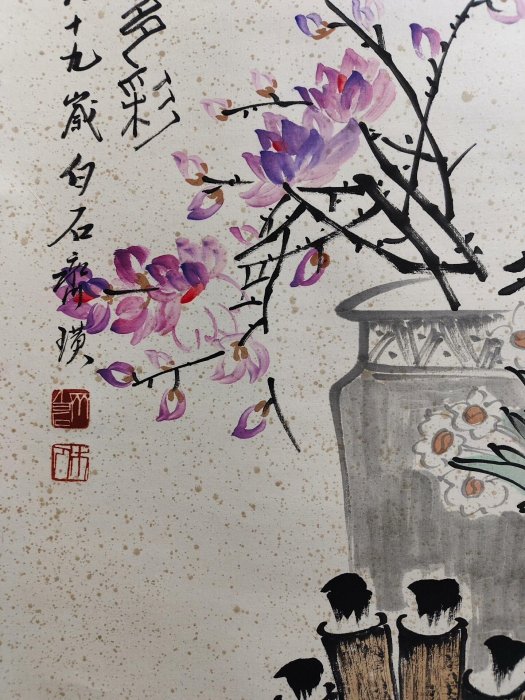 多彩
十九歲白石齊璜